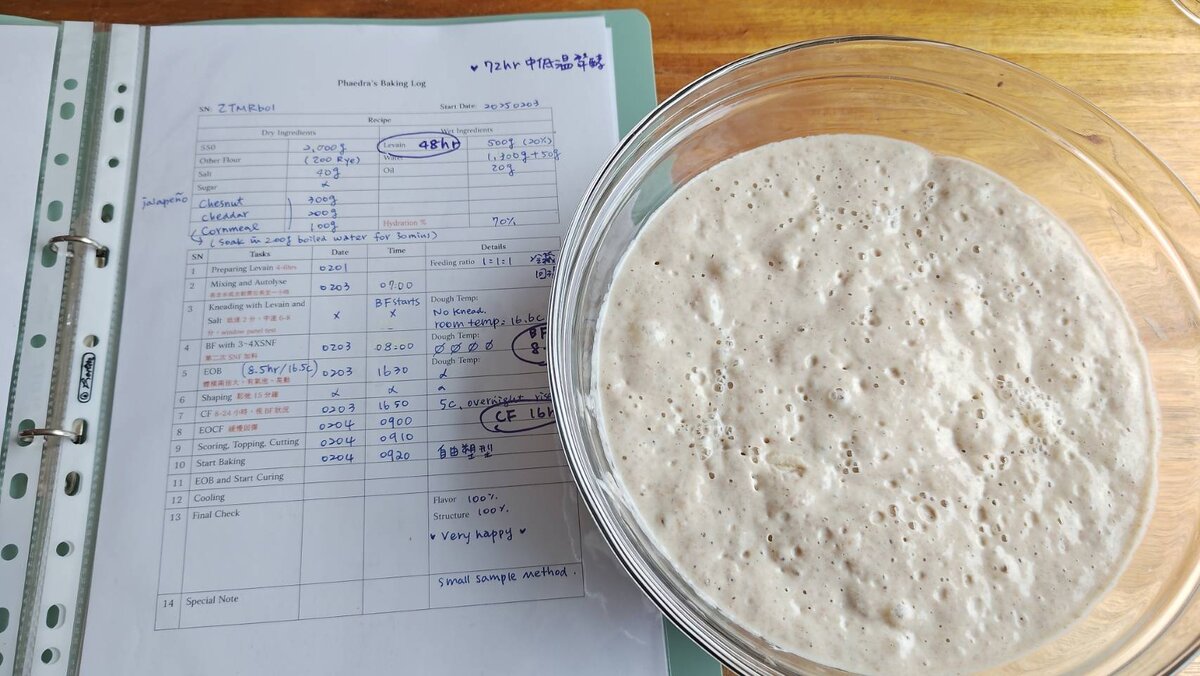 ♥ 72hr 中低温発酵
Phaedra's Baking Log
SN: ZTMRb01 Start Date: 20250203
Recipe
Dry Ingredients Wet Ingredients
550 2,000g Levain 48hr 500g (20%)
Other Flour (200 Rye) Water 1,300g+50g
Salt 40g Oil 20g
Sugar α
jalapeño
Chesnut 300g
Cheddar 200g
(Cornmeal 100g Hydration % 70%
(soak in 200g boiled water for 30mins)
SN Tasks Date Time Details
1 Preparing Levain 4-6hrs 0201 Feeding ratio 1:1:1
2 Mixing and Autolyse 0203 07:00
3 Kneading with Levain and BF starts Dough Temp:
Salt 低速2分,中速6-8 x x No knead.
分, window panel test room temp: 16.6c
4 BF with 3~4XSNF 0203 08:00 Dough Temp: BF
第二次SNF加料 Ø Ø Ø Ø 8.
5 EOB (8.5hr/16.5c) 0203 1630 Dough Temp:
體積兩倍大,有氣泡,晃動 α
6 Shaping 鬆弛15分鐘 α α α
7 CF 8-24小時,視BF狀況 0203 1650 5c, overnight
8 EOCF 緩慢回彈 0204 0900 CF 16h
9 Scoring, Topping, Cutting 0204 0910
10 Start Baking 0204 0920 自由塑型
11 EOB and Start Curing
12 Cooling
13 Final Check Flavor 100%.
Structure 100%.
♥ Very happy ♥
small sample method.
14 Special Note